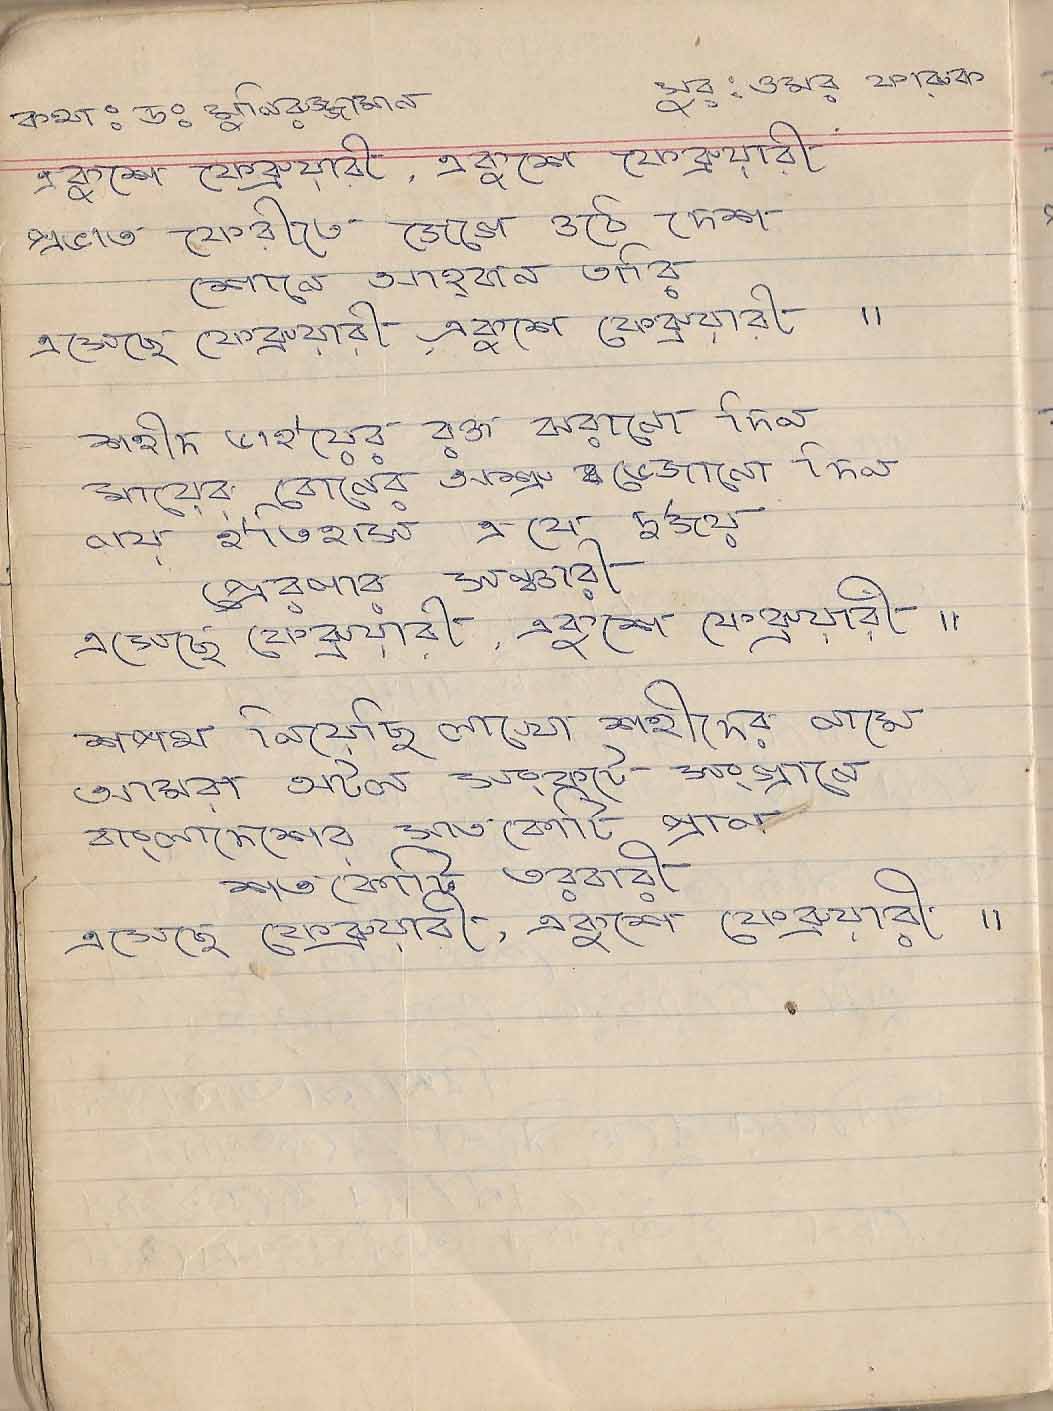 কথা: ডঃ মুনিরুজ্জামান
সুর: ওমর ফারুক
একুশে ফেব্রুয়ারী, একুশে ফেব্রুয়ারী
প্রভাত ফেরীতে জেগে ওঠে দেশ
শোনে আহ্বান তারি
এসেছে ফেব্রুয়ারী, একুশে ফেব্রুয়ারী ॥
শহীদ ভাইয়ের রক্ত ঝরানো দিন
মায়ের বোনের অশ্রু ভেজানো দিন
নয় ইতিহাস এ যে দুর্জয়
প্রেরণার সঞ্চারী
এসেছে ফেব্রুয়ারী, একুশে ফেব্রুয়ারী ॥
শপথ নিয়েছি লাখো শহীদের নামে
আমরা অটল সংকটে সংগ্রামে
বাংলাদেশের সাতকোটি প্রাণ
শতকোটি তরবারী
এসেছে ফেব্রুয়ারী, একুশে ফেব্রুয়ারী ॥